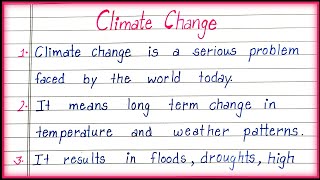 Climate Change
1. Climate change is a serious problem
faced by the world today.
2. It means long term change in
temperature and weather patterns.
3. It results in floods, droughts, high